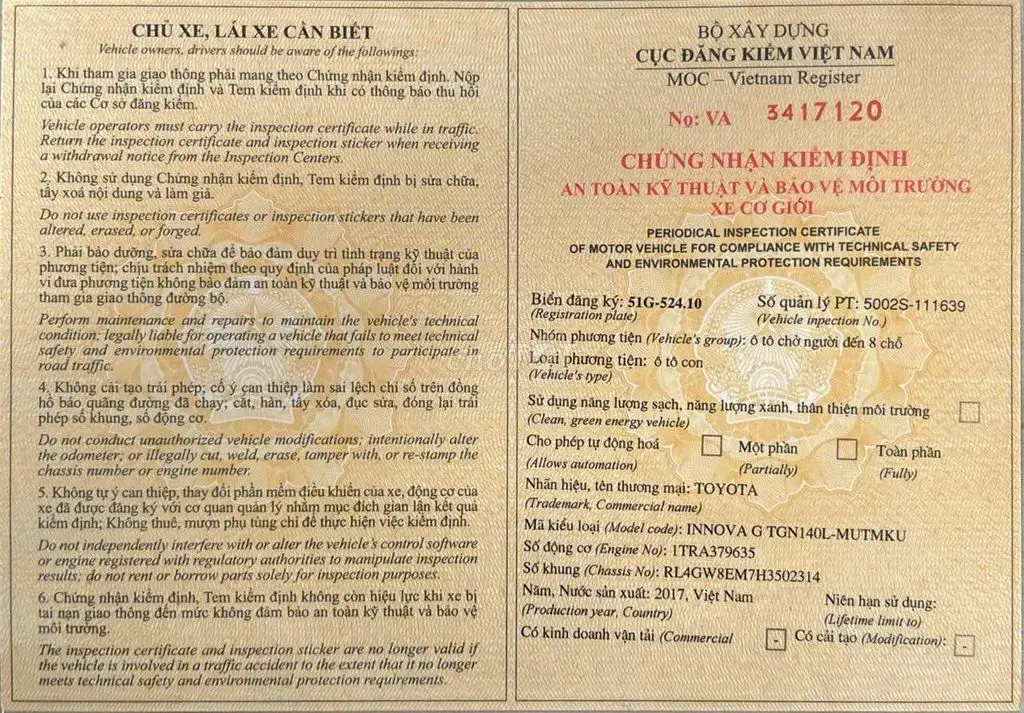 CHỦ XE, LÁI XE CẦN BIẾT
Vehicle owners, drivers should be aware of the followings:
1. Khi tham gia giao thông phải mang theo Chứng nhận kiểm định. Nộp
lại Chứng nhận kiểm định và Tem kiểm định khi có thông báo thu hồi
của các Cơ sở đăng kiểm.
Vehicle operators must carry the inspection certificate while in traffic.
Return the inspection certificate and inspection sticker when receiving
a withdrawal notice from the Inspection Centers.
2. Không sử dụng Chứng nhận kiểm định, Tem kiểm định bị sửa chữa,
tẩy xoá nội dung và làm giả.
Do not use inspection certificates or inspection stickers that have been
altered, erased, or forged.
3. Phải bảo dưỡng, sửa chữa để bảo đảm duy trì tình trạng kỹ thuật của
phương tiện; chịu trách nhiệm theo quy định của pháp luật đối với hành
vi đưa phương tiện không bảo đảm an toàn kỹ thuật và bảo vệ môi trường
tham gia giao thông đường bộ.
Perform maintenance and repairs to maintain the vehicle's technical
condition; legally liable for operating a vehicle that fails to meet technical
safety and environmental protection requirements to participate in
road traffic.
4. Không cải tạo trái phép; cố ý can thiệp làm sai lệch chỉ số trên đồng
hồ báo quãng đường đã chạy; cắt, hàn, tẩy xóa, đục sửa, đóng lại trái
phép số khung, số động cơ.
Do not conduct unauthorized vehicle modifications; intentionally alter
the odometer; or illegally cut, weld, erase, tamper with, or re-stamp the
chassis number or engine number.
5. Không tự ý can thiệp, thay đổi phần mềm điều khiển của xe, động cơ của
xe đã được đăng ký với cơ quan quản lý nhằm mục đích gian lận kết quả
kiểm định; Không thuê, mượn phụ tùng chỉ để thực hiện việc kiểm định.
Do not independently interfere with or alter the vehicle's control software
or engine registered with regulatory authorities to manipulate inspection
results; do not rent or borrow parts solely for inspection purposes.
6. Chứng nhận kiểm định, Tem kiểm định không còn hiệu lực khi xe bị
tai nạn giao thông đến mức không đảm bảo an toàn kỹ thuật và bảo vệ
môi trường.
The inspection certificate and inspection sticker are no longer valid if
the vehicle is involved in a traffic accident to the extent that it no longer
meets technical safety and environmental protection requirements.
BỘ XÂY DỰNG
CỤC ĐĂNG KIỂM VIỆT NAM
MOC – Vietnam Register
No: VA 3417120
CHỨNG NHẬN KIỂM ĐỊNH
AN TOÀN KỸ THUẬT VÀ BẢO VỆ MÔI TRƯỜNG
XE CƠ GIỚI
PERIODICAL INSPECTION CERTIFICATE
OF MOTOR VEHICLE FOR COMPLIANCE WITH TECHNICAL SAFETY
AND ENVIRONMENTAL PROTECTION REQUIREMENTS
Biển đăng ký: 51G-524.10 Số quản lý PT: 5002S-111639
(Registration plate) (Vehicle inpection No.)
Nhóm phương tiện (Vehicle's group): ô tô chở người đến 8 chỗ
Loại phương tiện: ô tô con
(Vehicle's type)
Sử dụng năng lượng sạch, năng lượng xanh, thân thiện môi trường
(Clean, green energy vehicle)
Cho phép tự động hoá Một phần Toàn phần
(Allows automation) (Partially) (Fully)
Nhãn hiệu, tên thương mại: TOYOTA
(Trademark, Commercial name)
Mã kiểu loại (Model code): INNOVA G TGN140L-MUTMKU
Số động cơ (Engine No): 1TRA379635
Số khung (Chassis No): RL4GW8EM7H3502314
Năm, Nước sản xuất: 2017, Việt Nam Niên hạn sử dụng:
(Production year, Country) (Lifetime limit to)
Có kinh doanh vận tải (Commercial - Có cải tạo (Modification): -